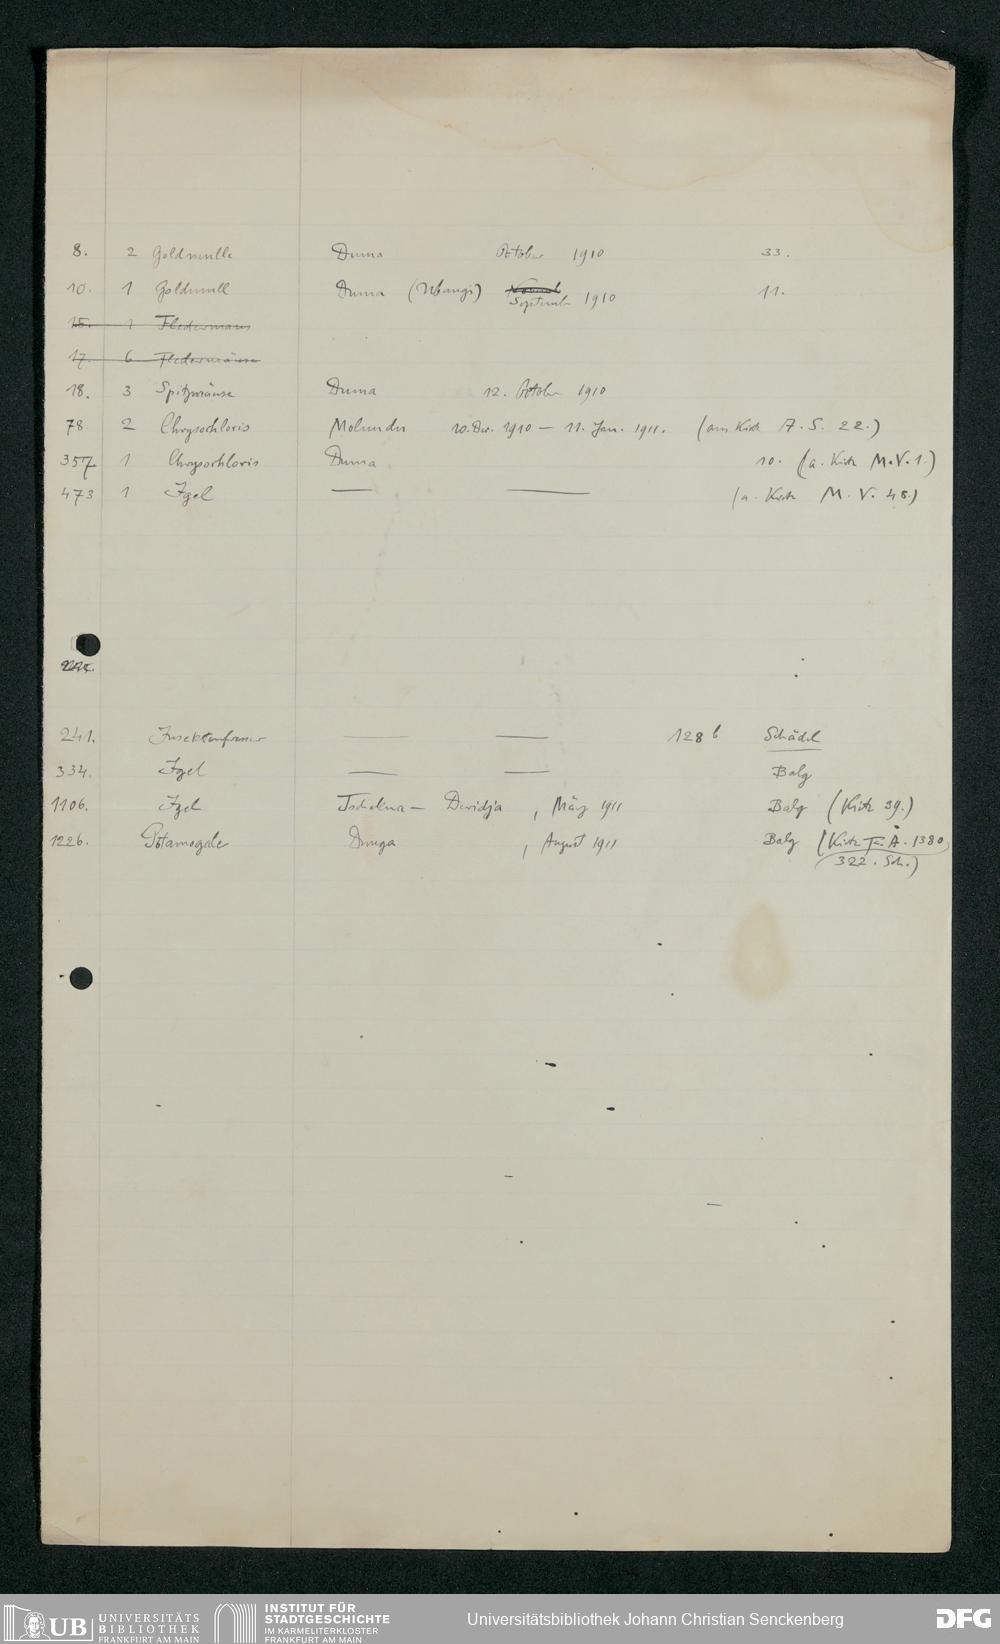 8. 2 Goldmulle Duma Oktober 1910 33.
10. 1 Goldmull Duma (Ubangi) Septemb 1910 11.
15. 1 Fledermaus
17. 6 Fledermäuse
18. 3 Spitzmäuse Duma 12. Oktober 1910
78. 2 Chrysochloris Molundu 20. Dez. 1910 — 11. Jan. 1911. (aus Kiste A. S. 22.)
357 1 Chrysochloris Duma 10. (a. Kiste M.V.1.)
473 1 Igel — — (a. Kiste M. V. 48.)
241. Insektenfresser — — 128 b Schädel
334. Igel — — Balg
1106. Igel — , März 1911 Balg (Kiste 39.)
1226. Potamogale Duuga , August 1911 Balg (Kiste A. 1380
322. Sch.)
UB UNIVERSITÄTS
BIBLIOTHEK
FRANKFURT AM MAIN
INSTITUT FÜR
STADTGESCHICHTE
IM KARMELITERKLOSTER
FRANKFURT AM MAIN
Universitätsbibliothek Johann Christian Senckenberg
DFG